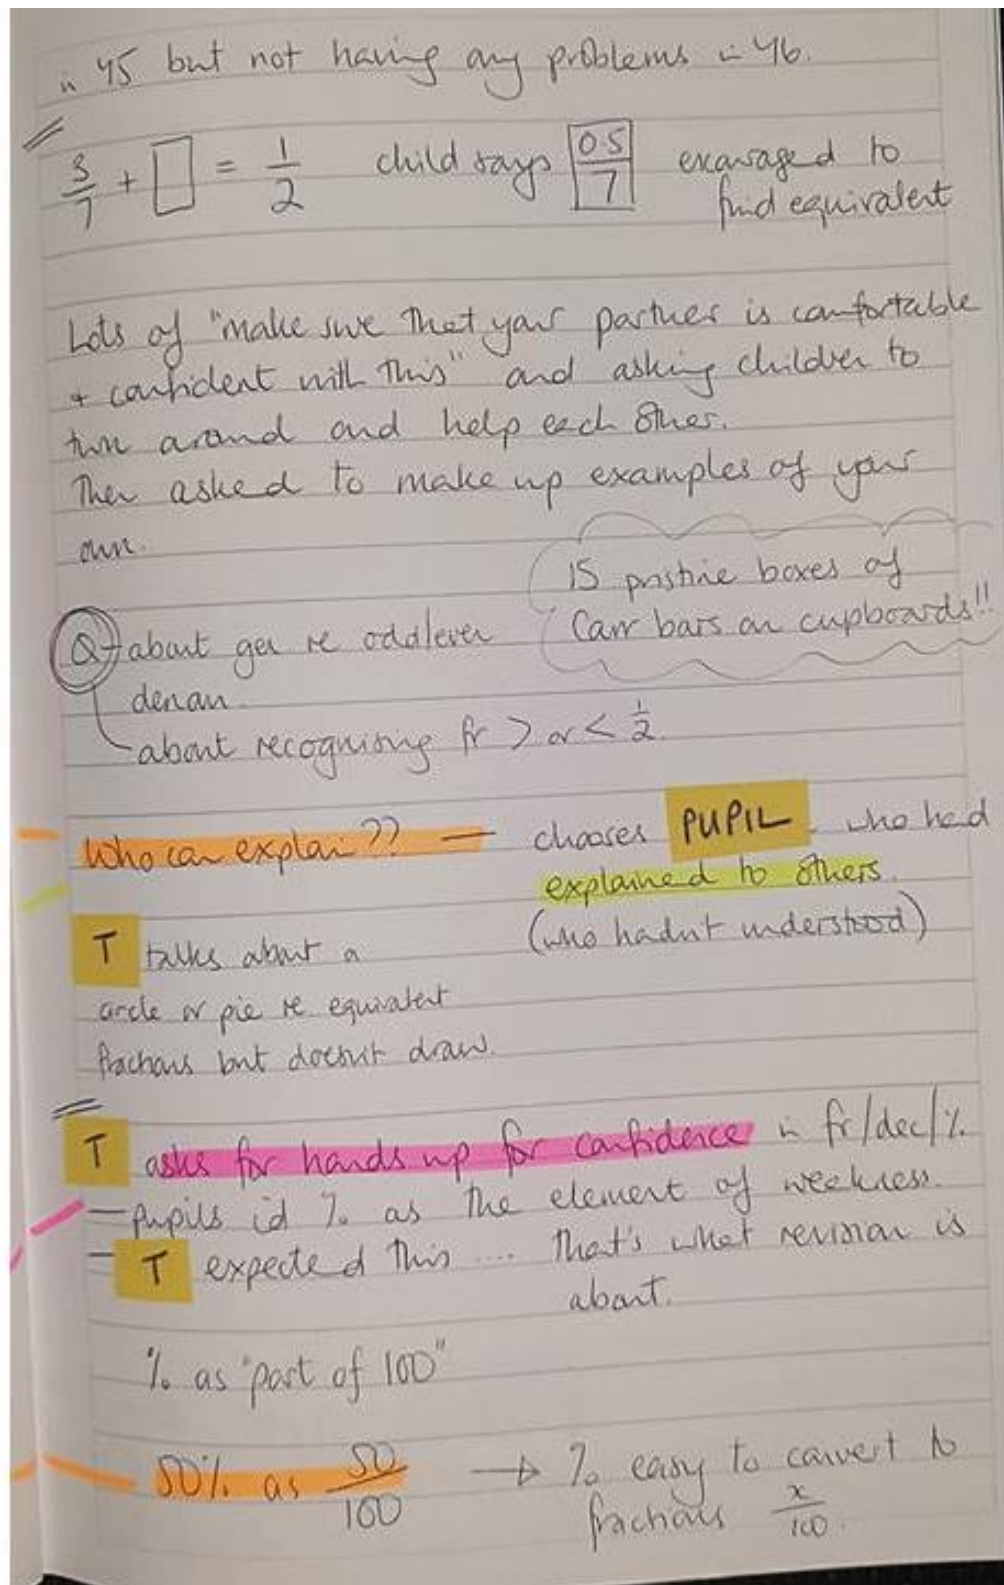 in Y5 but not having any problems in Y6.
3/7 + □ = 1/2 child says 0.5/7 encouraged to
find equivalent
Lots of "make sure that your partner is comfortable
+ confident with this" and asking children to
turn around and help each other.
Then asked to make up examples of your
own.
15 pristine boxes of
Carr bars on cupboards!!
Q about gen re odd/even
denom.
about recognising fr > or < 1/2.
Who can explain?? — chooses PUPIL who had
explained to others.
(who hadn't understood)
T talks about a
circle or pie re equivalent
fractions but doesn't draw.
T asks for hands up for confidence in fr/dec/%.
— pupils id % as the element of weakness.
— T expected this .... that's what revision is
about.
% as "part of 100"
50% as 50/100 → % easy to convert to
fractions x/100.